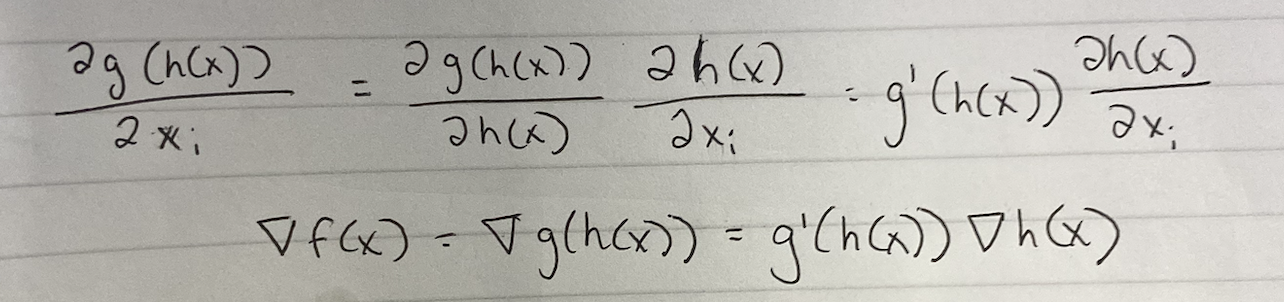 ∂g(h(x))/∂x_i = ∂g(h(x))/∂h(x) ∂h(x)/∂x_i = g'(h(x)) ∂h(x)/∂x_i
∇f(x) = ∇g(h(x)) = g'(h(x)) ∇h(x)